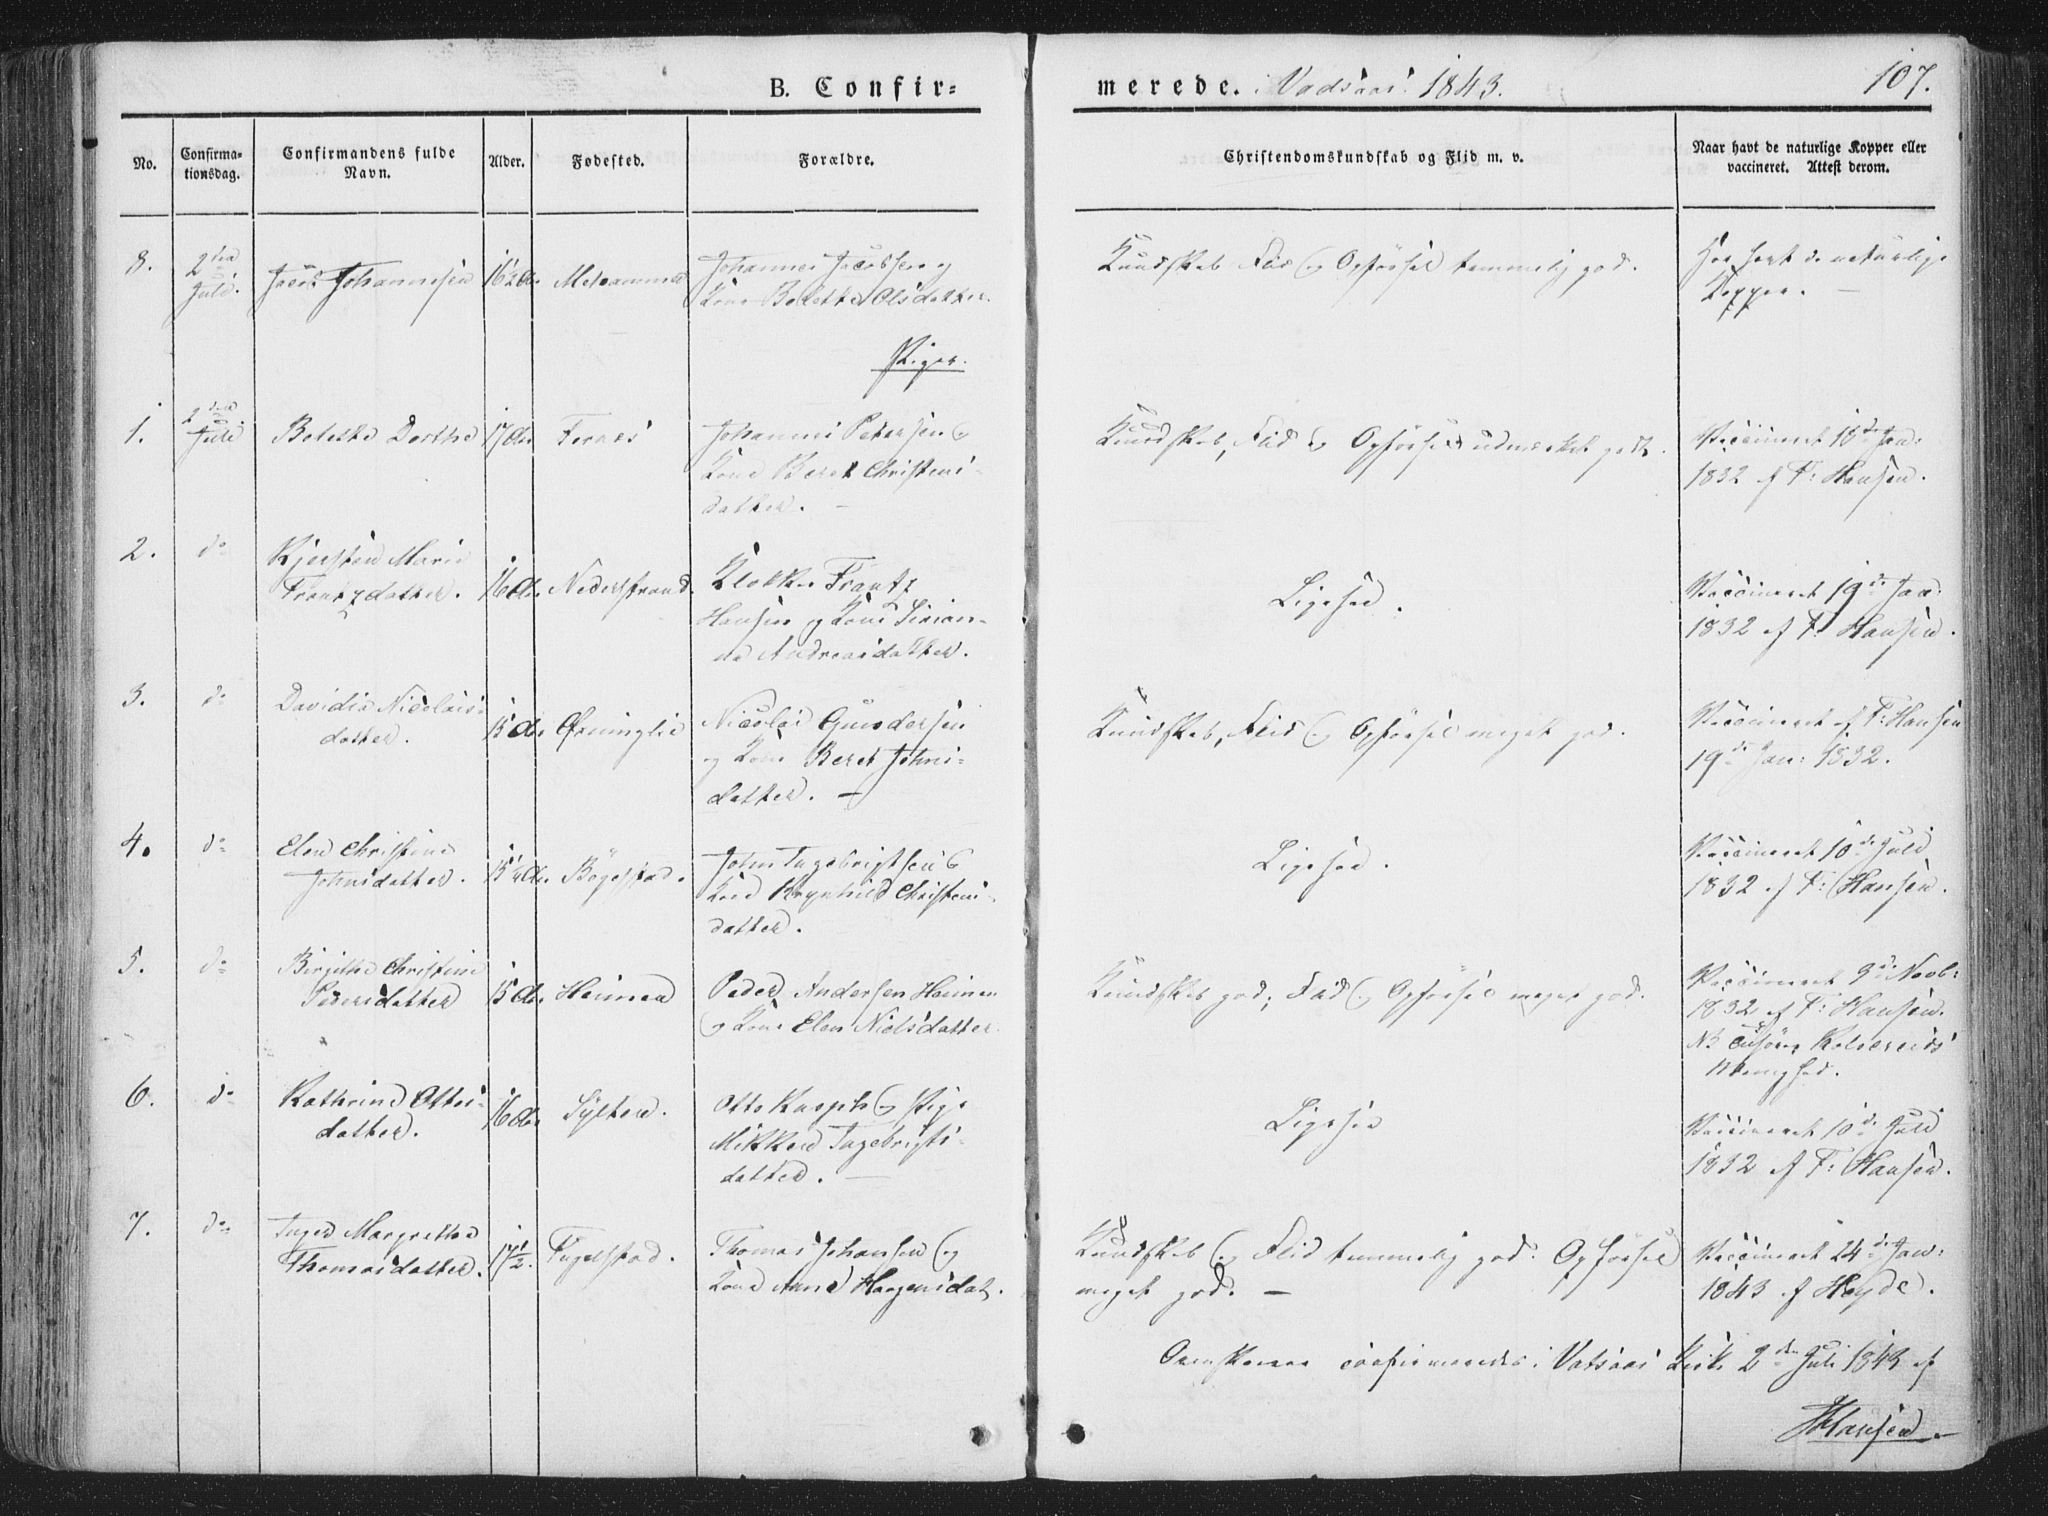 B. Confir-
merede. i Vadsaas 1843.
107.
No.
Confirma-
tionsdag.
Confirmandens fulde
Navn.
Alder.
Fødested.
Forældre.
Christendomskundskab og Flid m. v.
Naar havt de naturlige Kopper eller
vaccineret. Attest derom.
8.
2den
Juli.
Jacob Johannesen
16½ Aar
Johannes Jacobsen og
Kone Beletha Olsdatter.
Kundskab Flid og Opførsel temmelig god.
Har havt de naturlige
Kopper. –
Piger.
1.
2den
Juli
Beletha Dorthea
17 Aar
Johannes Petersen og
Kone Beret Christens-
datter. –
Kundskab, Flid og Opførsel udmærket godt.
Vaccineret 10de Jan:
1832 af F: Hansen.
2.
do
Kjersten Marie
Frantzdatter.
16 Aar
Nederstrand.
Klokker Frantz
Hansen og Kone Sirian-
na Andreasdatter.
Ligesaa.
Vaccineret 19de Jan:
1832 af F: Hansen.
3.
do
Davidia Nicolais-
datter.
15 Aar
Ørninglie
Nicolai Gundersen
og Kone Beret Johns-
datter. –
Kundskab, Flid og Opførsel meget god.
Vaccineret af F: Hansen
19de Jan: 1832.
4.
do
Elen Christine
Johnsdatter.
15¼ Aar
Bøgestad.
John Ingebrigtsen og
Kone Ragnhild Christens-
datter.
Ligesaa.
Vaccineret 10de Juli
1832 af F: Hansen.
5.
do
Birgitha Christine
Pedersdatter
15 Aar
Heimen
Peder Andersen Heimen
og Kone Elen Nielsdatter.
Kundskab god; Flid og Opførsel meget god.
Vaccineret 9de Novb:
1832 af F: Hansen.
NB Kolvereids
Menighed.
6.
do
Kathrine Ottes-
datter.
16 Aar
Sylten.
Otto og Pige
Mikken Ingebrigts-
datter. –
Ligesaa
Vaccineret 10de Juli
1832 af F: Hansen.
7.
do
Inger Margretha
Thomasdatter.
17½.
Fugelstad.
Thomas Johansen og
Kone Anne Haagensdat.
Kundskab og Flid temmelig god. Opførsel
meget god. –
Vaccineret 24de Jan:
1843 af Heyde.
Ovenstaaende confirmerede i Vatsaas Kirke 2den Juli 1843 af
Hansen.